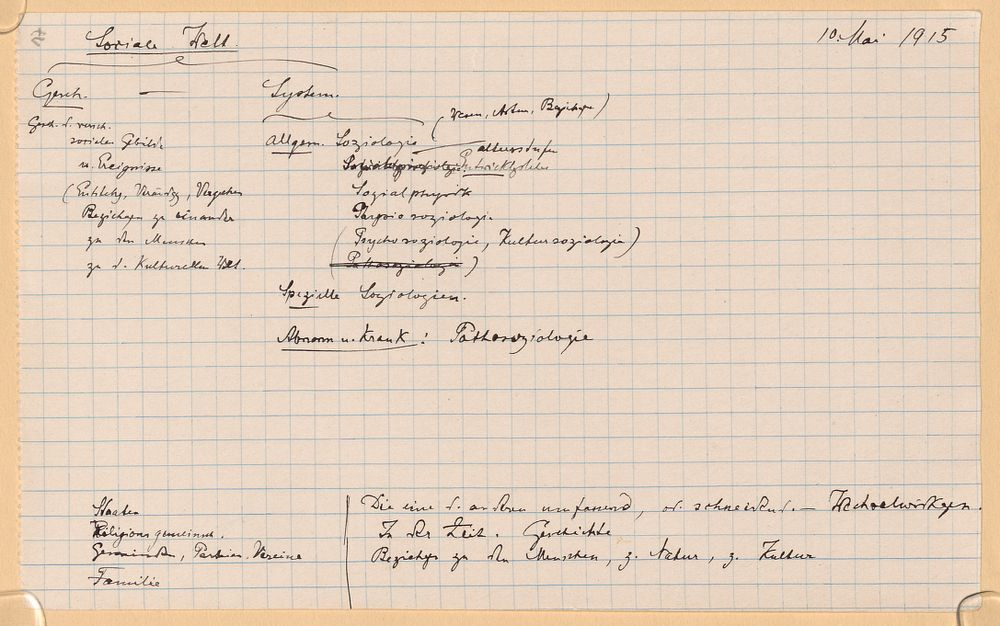 Soziale Welt.
10. Mai 1915
Gesch. — System.
(Wesen, Arten, Beziehgen)
Gesch. d. versch.
sozialen Gebilde
u. Ereignisse
(Entstehg, Verändg, Vergehen
Beziehgen zu einander
zu den Menschen
zu d. Kulturellen Welt.
Allgem. Soziologie
Altersstufen
Entwicklgstufen
Sozialphysik
Physiosoziologie
(Psychosoziologie, Kultursoziologie)
(Pathosoziologie)
Spezielle Soziologien.
Abnorm u. Krank: Pathosoziologie
Staaten
Religionsgemeinsch.
Gemeinden, Parteien, Vereine
Familie
Die eine d. anderen umfassend, od. schneidend. — Wechselwirkgen.
In der Zeit. Geschichte
Beziehgen zu den Menschen, z. Natur, z. Kultur